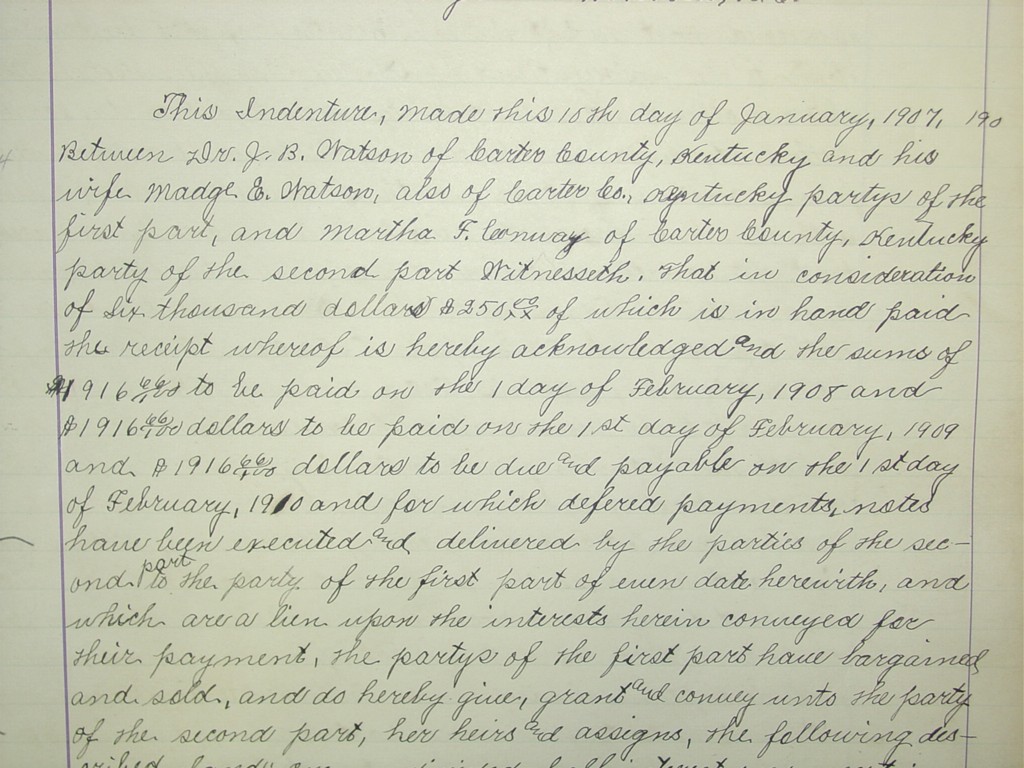 This Indenture, made this 10th day of January, 1907, 190
Between Dr. J. B. Watson of Carter County, Kentucky and his
wife Madge E. Watson, also of Carter Co., Kentucky partys of the
first part, and Martha F. Conway of Carter County, Kentucky
party of the second part Witnesseth. That in consideration
of Six thousand dollars $250 of which is in hand paid
the receipt whereof is hereby acknowledged and the sums of
$1916 66/100 to be paid on the 1 day of February, 1908 and
$1916 66/100 dollars to be paid on the 1st day of February, 1909
and $1916 66/100 dollars to be due and payable on the 1st day
of February, 1910 and for which defered payments, notes
have been executed and delivered by the parties of the sec-
ond part to the party of the first part of even date herewith, and
which are a lien upon the interests herein conveyed for
their payment, the partys of the first part have bargained
and sold, and do hereby give, grant and convey unto the party
of the second part, her heirs and assigns, the following des-